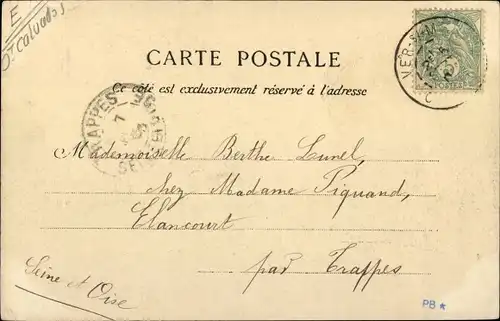 E
Dt Calvados
CARTE POSTALE
Ce côté est exclusivement réservé à l'adresse
POSTES
VER-S-M
TRAPPES
7
SEINE
Mademoiselle Berthe Lunel,
chez Madame Piquand,
Elancourt
par Trappes
Seine et Oise
PB *